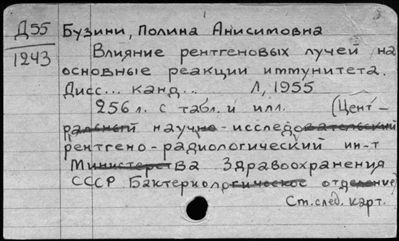 Д55 Бузини, Полина Анисимовна
1243 Влияние рентгеновых лучей на
основные реакции иммунитета.
Дисс... канд... Л, 1955
256 л. с табл. и илл. (Цент-
ральный научно-исследовательский
рентгено-радиологический ин-т
Министерства Здравоохранения
СССР Бактериологическое отделение)
См. след. карт.